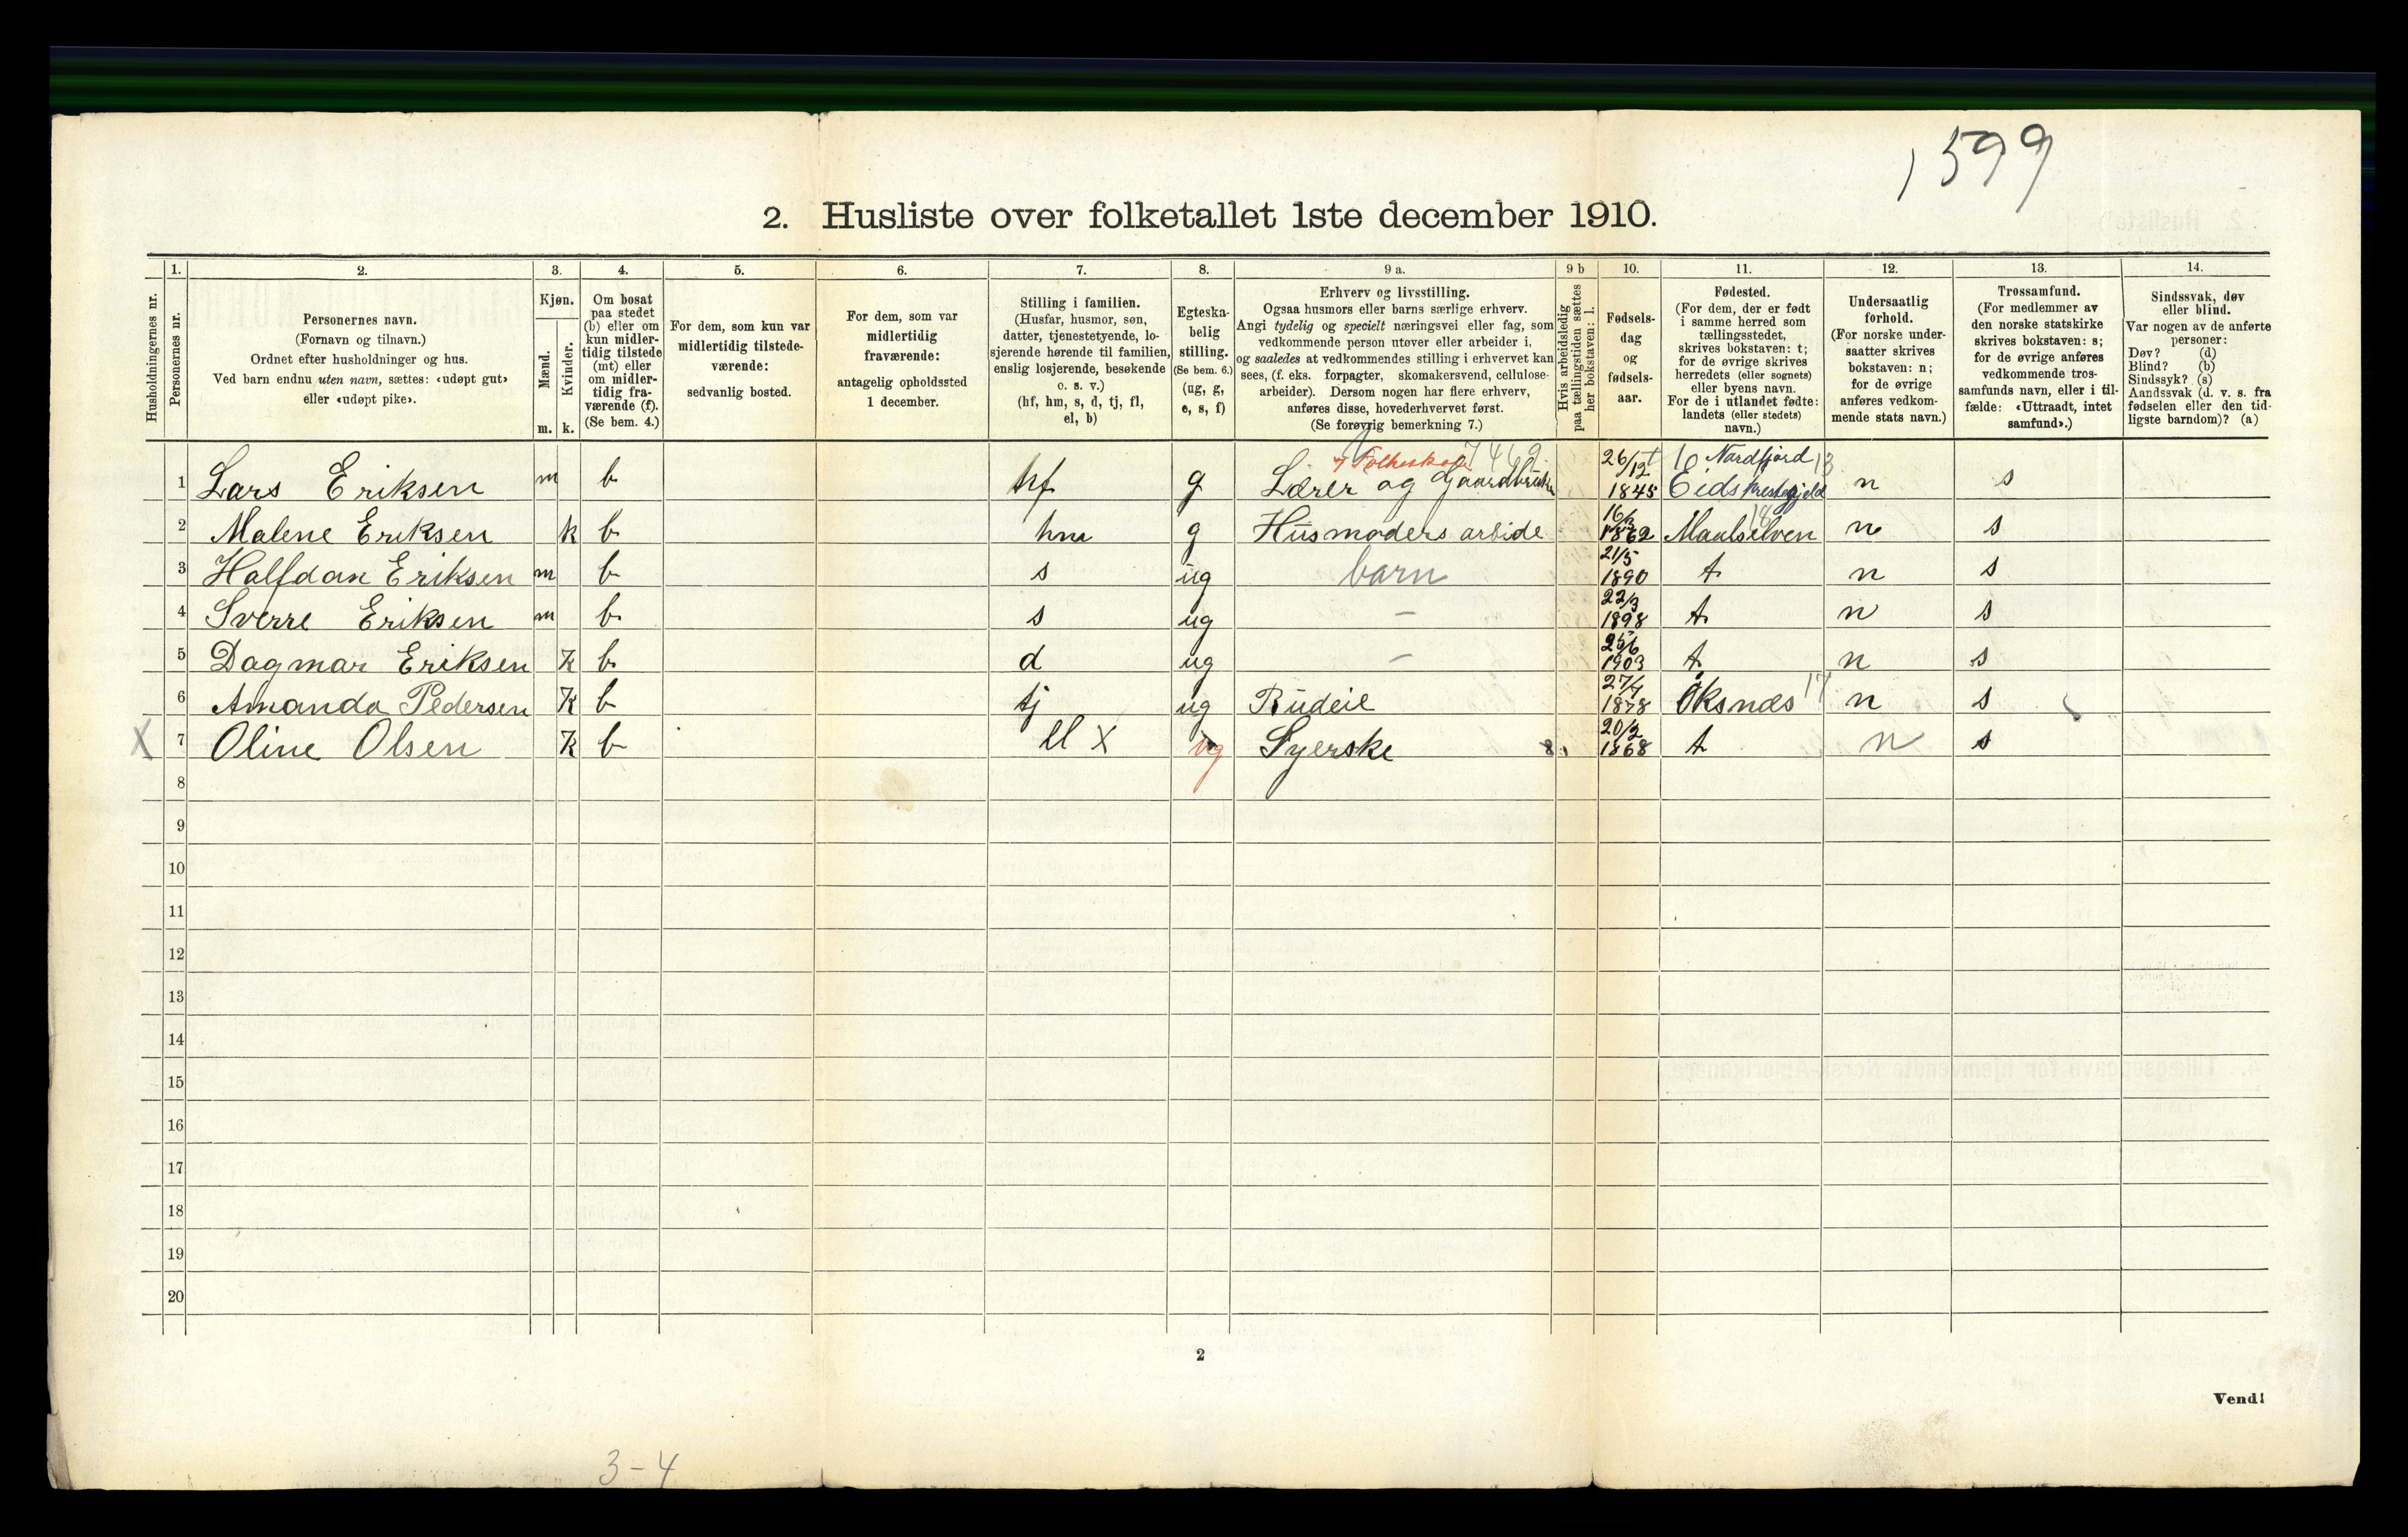 1599
2. Husliste over folketallet 1ste december 1910.
1. 2. 3. 4. 5. 6. 7. 8. 9 a. 9 b 10. 11. 12. 13. 14.
Husholdningernes nr.
Personernes nr.
Personernes navn.
(Fornavn og tilnavn.)
Ordnet efter husholdninger og hus.
Ved barn endnu uten navn, sættes: «udøpt gut»
eller «udøpt pike».
Kjøn.
Mænd.
Kvinder.
m. k.
Om bosat
paa stedet
(b) eller om
kun midler-
tidig tilstede
(mt) eller
om midler-
tidig fra-
værende (f).
(Se bem. 4.)
For dem, som kun var
midlertidig tilstede-
værende:
sedvanlig bosted.
For dem, som var
midlertidig
fraværende:
antagelig opholdssted
1 december.
Stilling i familien.
(Husfar, husmor, søn,
datter, tjenestetyende, lo-
sjerende hørende til familien,
enslig losjerende, besøkende
o. s. v.)
(hf, hm, s, d, tj, fl,
el, b)
Egteska-
belig
stilling.
(Se bem. 6.)
(ug, g,
e, s, f)
Erhverv og livsstilling.
Ogsaa husmors eller barns særlige erhverv.
Angi tydelig og specielt næringsvei eller fag, som
vedkommende person utøver eller arbeider i,
og saaledes at vedkommendes stilling i erhvervet kan
sees, (f. eks. forpagter, skomakersvend, cellulose-
arbeider). Dersom nogen har flere erhverv,
anføres disse, hovederhvervet først.
(Se forøvrig bemerkning 7.)
Hvis arbeidsledig
paa tællingstiden sættes
her bokstaven: l.
Fødsels-
dag
og
fødsels-
aar.
Fødested.
(For dem, der er født
i samme herred som
tællingsstedet,
skrives bokstaven: t;
for de øvrige skrives
herredets (eller sognets)
eller byens navn.
For de i utlandet fødte:
landets (eller stedets)
navn.)
Undersaatlig
forhold.
(For norske under-
saatter skrives
bokstaven: n;
for de øvrige
anføres vedkom-
mende stats navn.)
Trossamfund.
(For medlemmer av
den norske statskirke
skrives bokstaven: s;
for de øvrige anføres
vedkommende tros-
samfunds navn, eller i til-
fælde: «Uttraadt, intet
samfund».)
Sindssvak, døv
eller blind.
Var nogen av de anførte
personer:
Døv? (d)
Blind? (b)
Sindssyk? (s)
Aandssvak (d. v. s. fra
fødselen eller den tid-
ligste barndom)? (a)
Folkeskole 7469 26/12 Nordfjord 13
1 Lars Eriksen m b hf g Lærer og Gaardbruker 1845 Eids Prestegjeld n s
2 Malene Eriksen k b hm g Husmoders arbide 1862 Maalselven n s
3 Halfdan Eriksen m b s ug barn 21/5 1890 t n s
4 Sverre Eriksen m b s ug – 22/3 1898 t n s
5 Dagmar Eriksen K b d ug – 25/6 1903 t n s
6 Amanda Pedersen K b tj ug Budeie 1878 Öksnes 17 n s
X 7 Oline Olsen K b el X ug Syerske 20/2 1868 t n s
8
9
10
11
12
13
14
15
16
17
18
19
20
2
Vend!
3-4